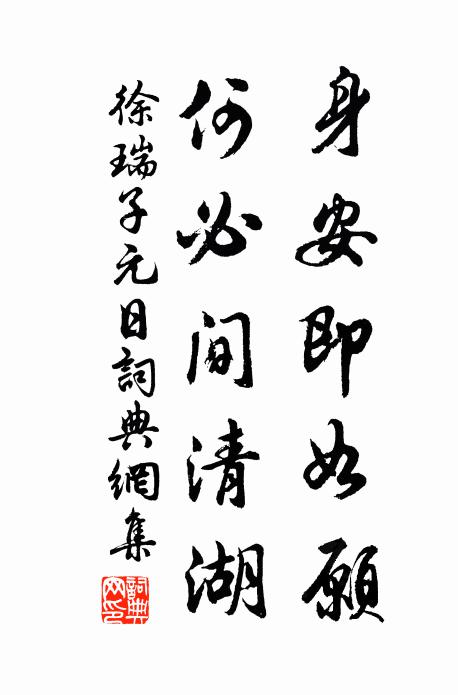 身安即如願
何必間清湖
徐瑞子元日詞典網集
詞典网印